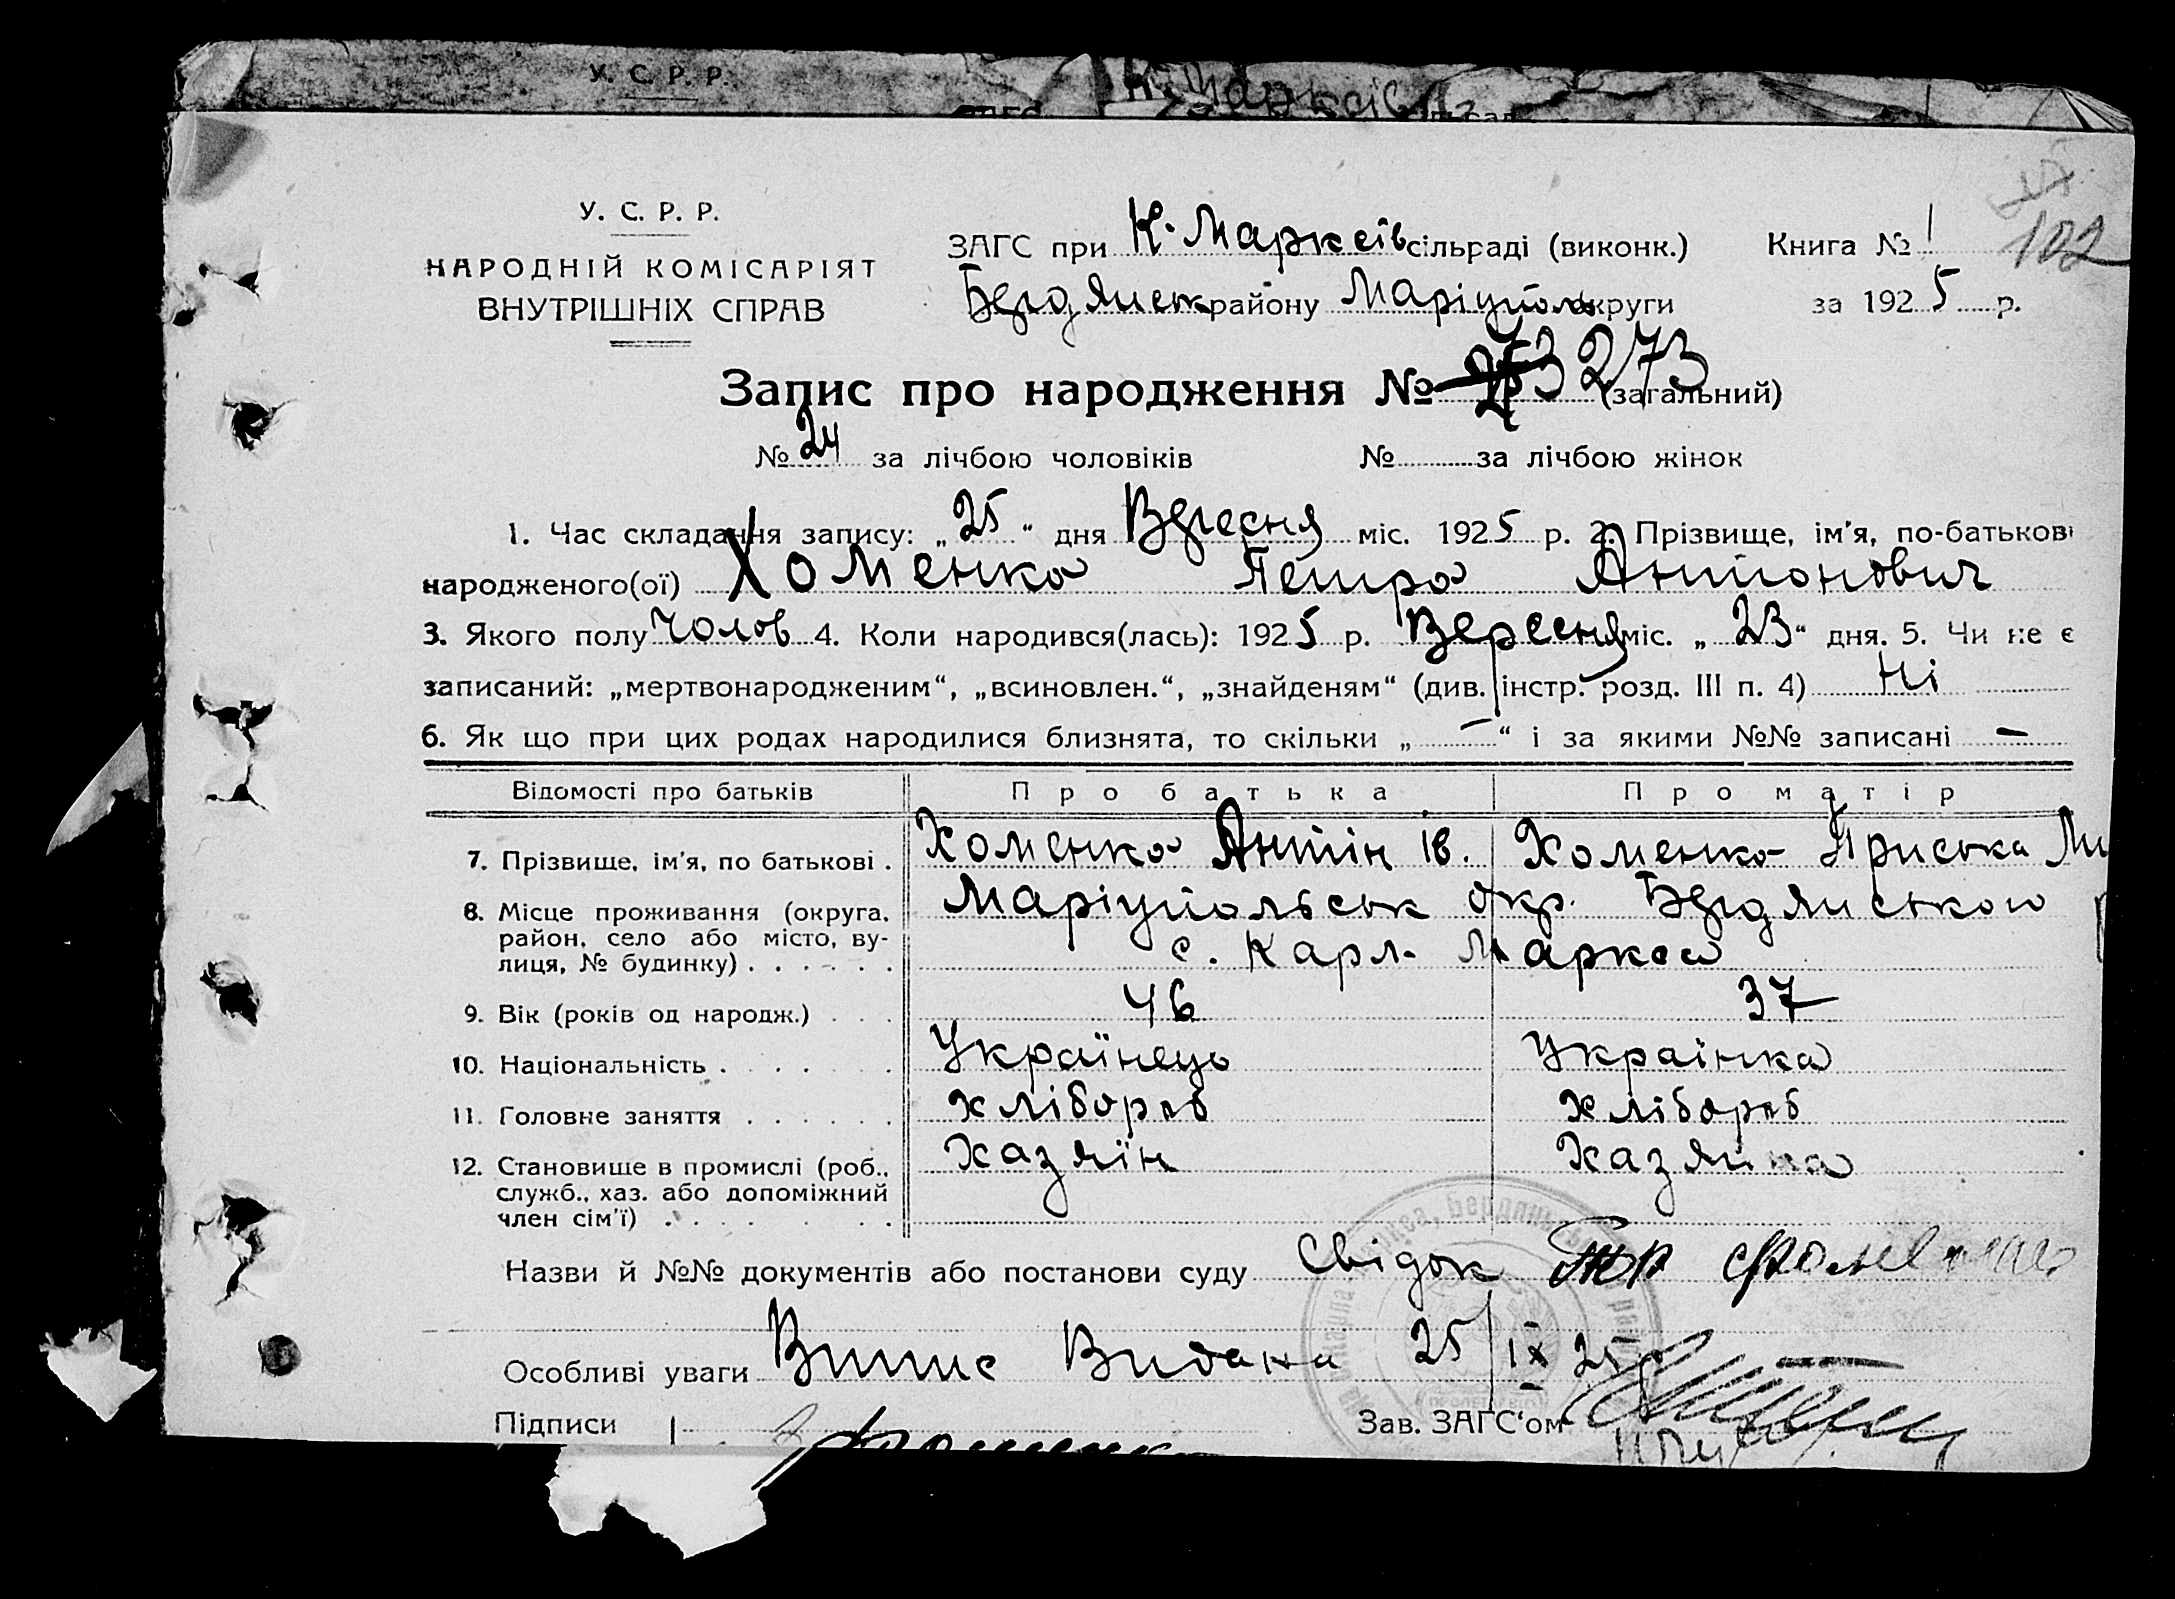 У. С. Р. Р.
У. С. Р. Р.
НАРОДНІЙ КОМІСАРІЯТ
ВНУТРІШНІХ СПРАВ
ЗАГС при К. Марксів сільраді (виконк.) Книга № 1
102
Бердянськ району Маріуполь округи за 1925 р.
Запис про народження № 273 (загальний)
№ 24 за лічбою чоловіків № за лічбою жінок
1. Час складання запису: „25“ дня Вересня міс. 1925 р. 2. Прізвище, ім'я, по-батькові
народженого(ої) Хоменко Петро Антонович
3. Якого полу Чолов 4. Коли народився(лась): 1925 р. Вересня міс. „23“ дня. 5. Чи не є
записаний: „мертвонародженим“, „всиновлен.“, „знайденям“ (див. інстр. розд. III п. 4) Ні
6. Як що при цих родах народилися близнята, то скільки „ — “ і за якими №№ записані —
Відомості про батьків Про батька Про матір
7. Прізвище, ім'я, по батькові . Хоменко Антін Ів. Хоменко Приська Ми
8. Місце проживання (округа, Маріупольськ окр. Бердянського
район, село або місто, ву-
лиця, № будинку) . . . . . . с. Карл. Маркса
9. Вік (років од народж.) . . . 46 37
10. Національність . . . . . . . Українець Українка
11. Головне заняття . . . . . . Хлібороб Хлібороб
12. Становище в промислі (роб., Хазяїн Хазяйка
служб., хаз. або допоміжний
член сім'ї) . . . . . . .
Назви й №№ документів або постанови суду Свідок
Особливі уваги Випис Видана 25/IX 25р
Підписи Зав. ЗАГС‘ом